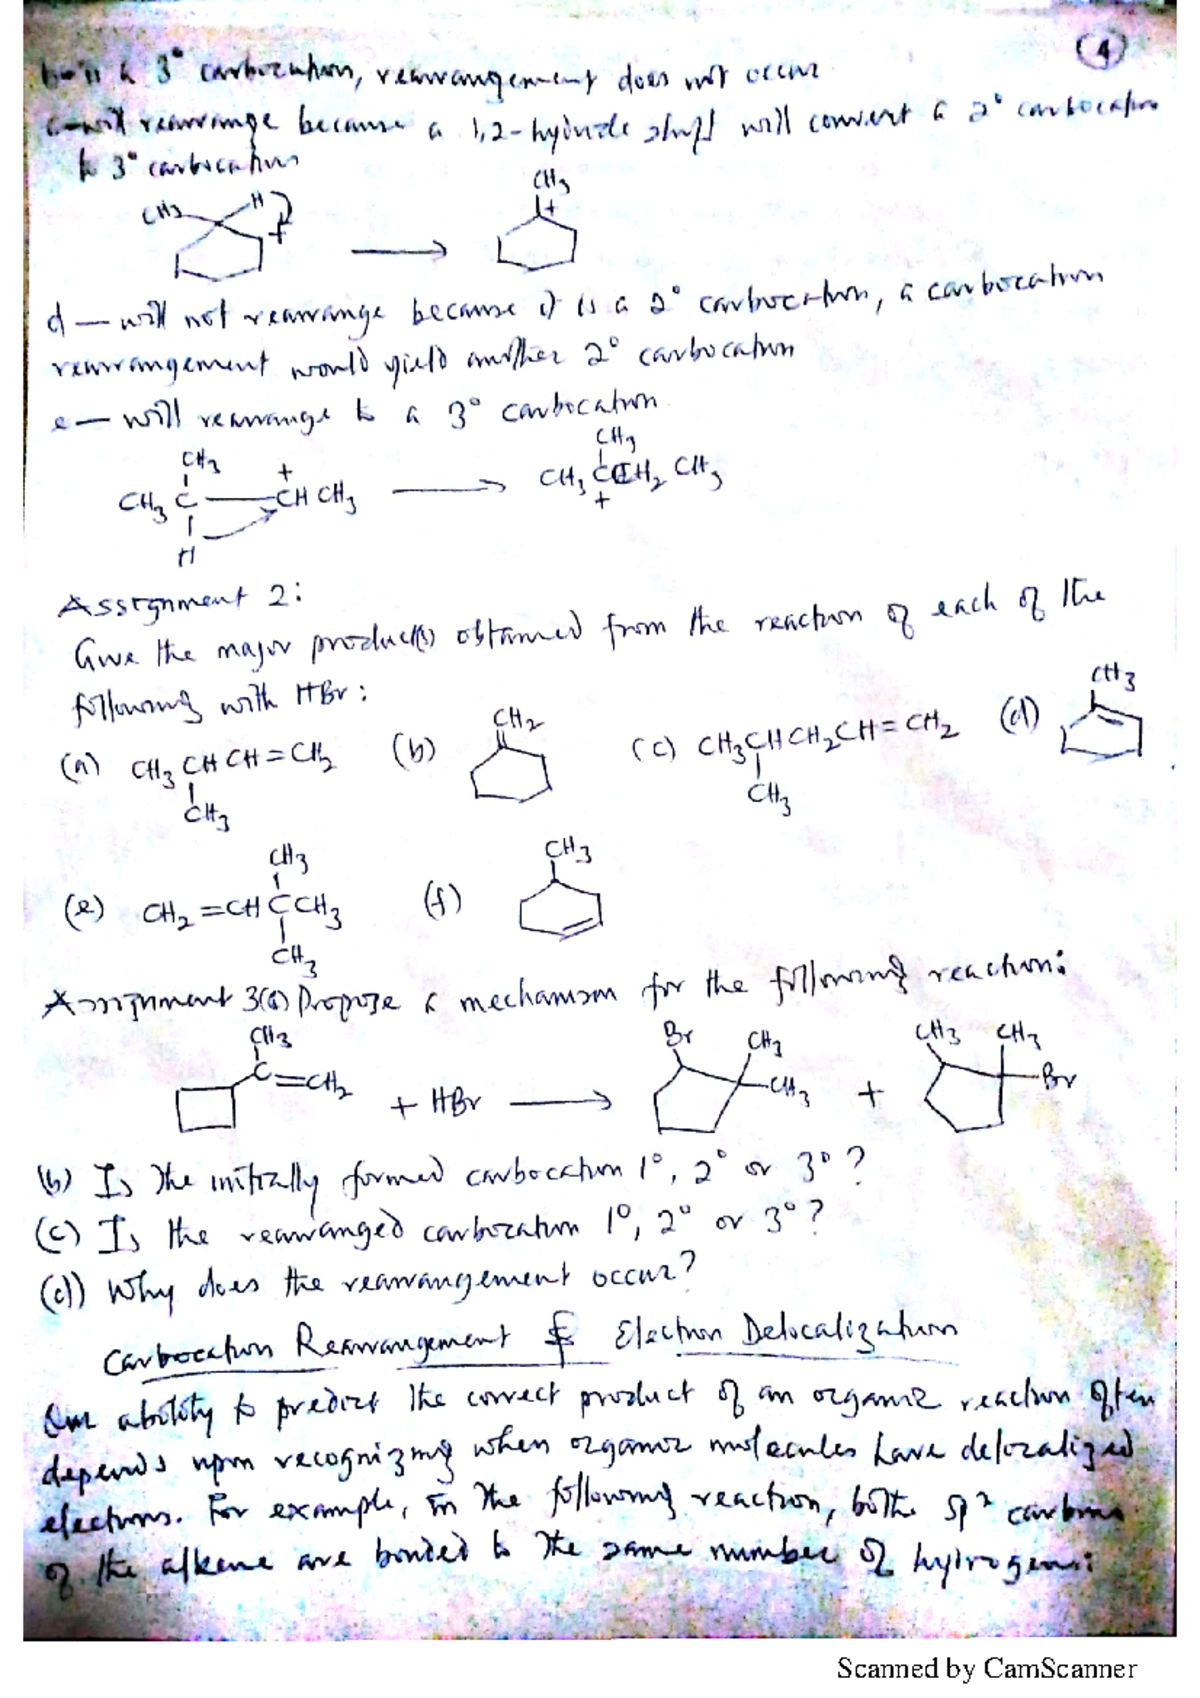 (4)
is a 3° carbocation, rearrangement does not occur
c-will rearrange because a 1,2-hydride shift will convert a 2° carbocation
to 3° carbocation
CH3 H + CH3 +
d — will not rearrange because it is a 2° carbocation, a carbocation
rearrangement would yield another 2° carbocation
e — will rearrange to a 3° carbocation
CH3 + CH3
CH3 C — CH CH3 CH3 C CH2 CH3
H +
Assignment 2:
Give the major product(s) obtained from the reaction of each of the
following with HBr:
(a) CH3 CH CH = CH2 (b) CH2 (c) CH3 CH CH2 CH = CH2 (d) CH3
CH3 CH3
CH3 CH3
(e) CH2 = CH C CH3 (f)
CH3
Assignment 3(a) Propose a mechanism for the following reaction:
CH3 Br CH3 CH3 CH3
C = CH2 + HBr CH3 + Br
(b) Is the initially formed carbocation 1°, 2° or 3°?
(c) Is the rearranged carbocation 1°, 2° or 3°?
(d) Why does the rearrangement occur?
Carbocation Rearrangement & Electron Delocalization
Our ability to predict the correct product of an organic reaction often
depends upon recognizing when organic molecules have delocalized
electrons. For example, in the following reaction, both sp² carbons
of the alkene are bonded to the same number of hydrogens:
Scanned by CamScanner